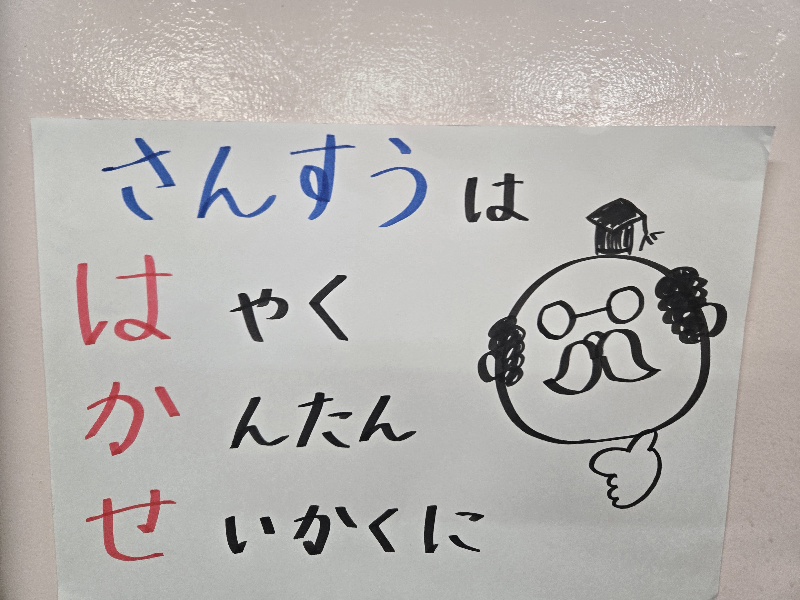 さんすうは
はやく
かんたん
せいかくに